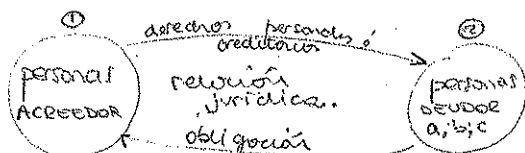 ①
derechos personales ó
creditorios
②
personas
ACREEDOR
relación
jurídica.
personas
DEUDOR
a, b, c
obligación